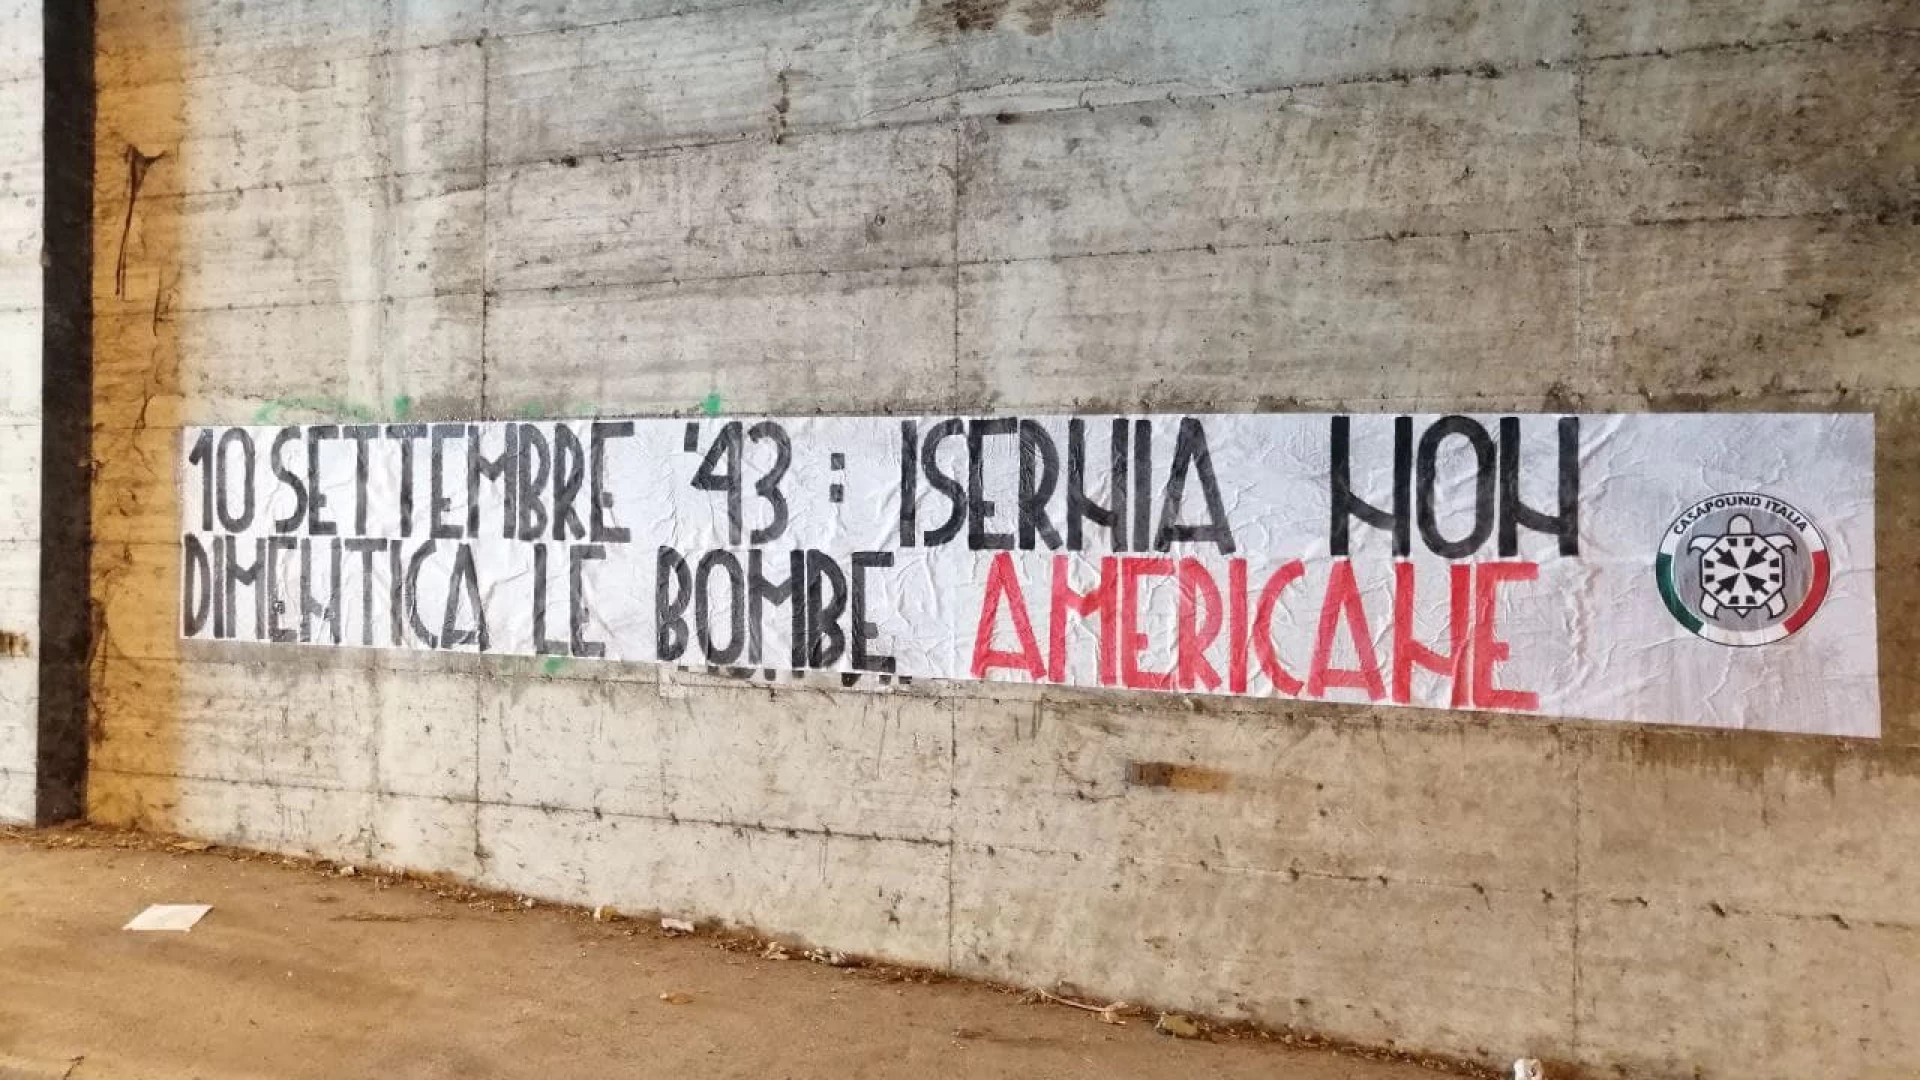 10 SETTEMBRE '43: ISERNIA NON
DIMENTICA LE BOMBE AMERICANE
CASAPOUND ITALIA